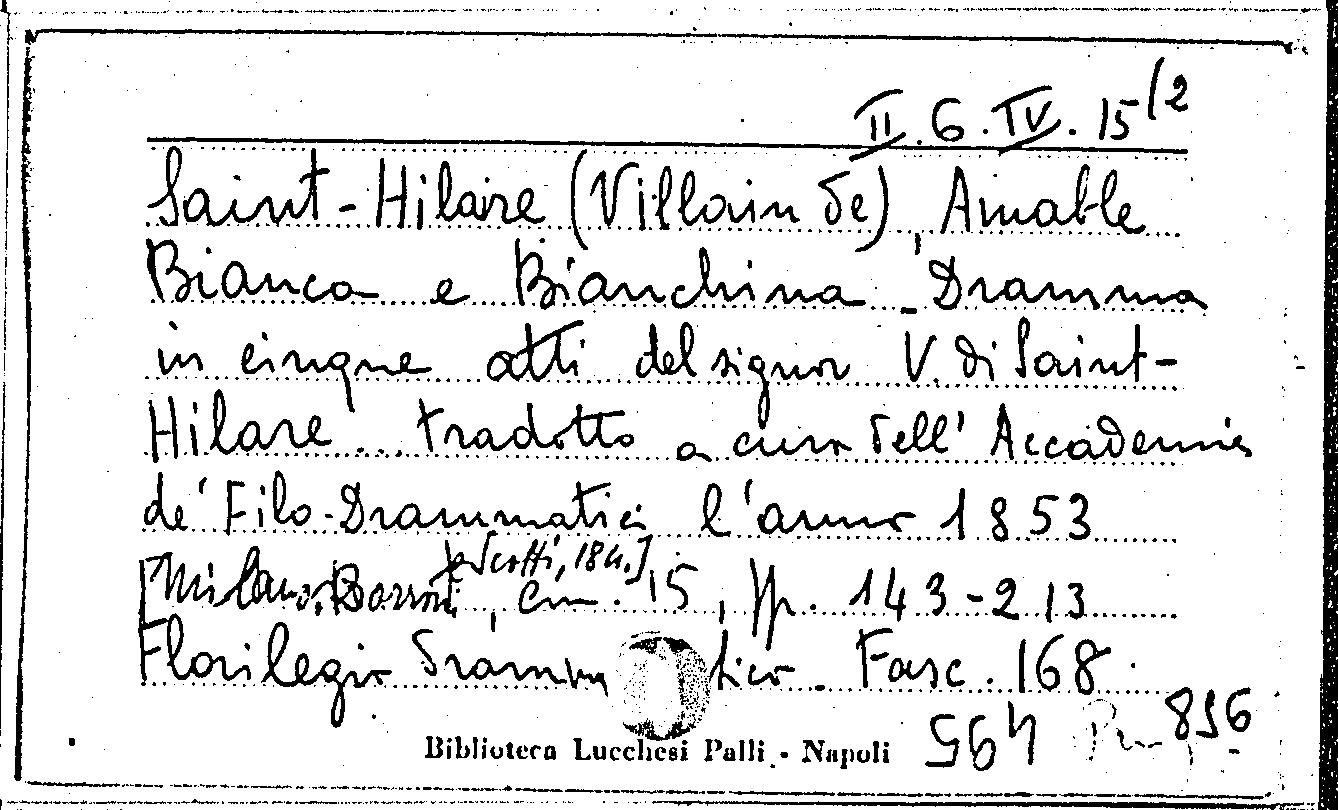 II. 6. IV. 15/2
Saint-Hilaire (Villain de), Amable
Bianca e Bianchina - Dramma
in cinque atti del signor V. di Saint-
Hilare... tradotto a cura dell' Accademia
de' Filo-Drammatici l'anno 1853
p Scotti, 184.]
[Milano, Borroni, cm. 15, pp. 143-213
Florilegio Drammatico. Fasc. 168
564 836
Biblioteca Lucchesi Palli - Napoli